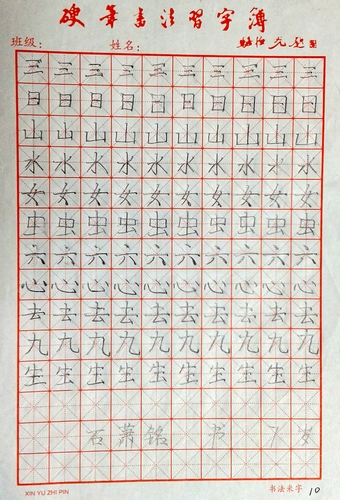 硬筆書法習字簿
班级： 姓名：
三三三三三三三三三三
日日日日日日日日日日
山山山山山山山山山山
水水水水水水水水水水
女女女女女女女女女女
虫虫虫虫虫虫虫虫虫虫
六六六六六六六六六六
心心心心心心心心心心
去去去去去去去去去去
九九九九九九九九九九
生生生生生生生生生生
石萧铭 书 岁
XIN YU ZHI PIN 书法米字 10